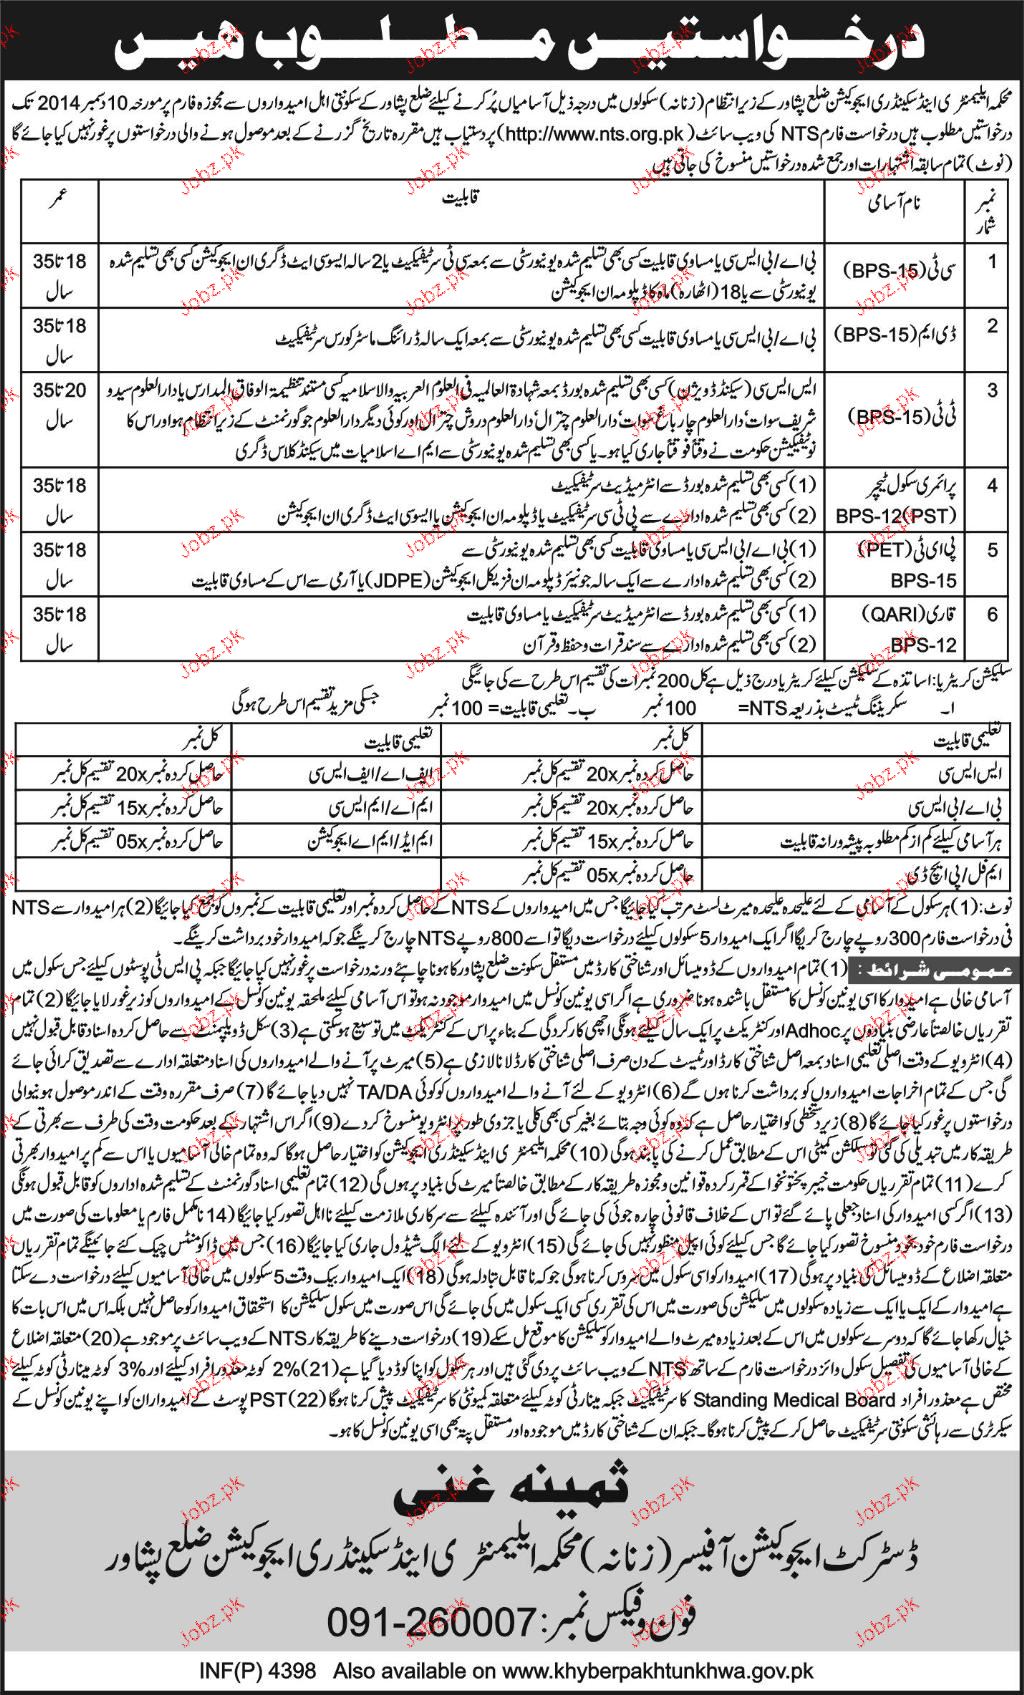 درخواستیں مطلوب ہیں
محکمہ ایلیمنٹری اینڈ سیکنڈری ایجوکیشن ضلع پشاور کے زیر انتظام (زنانہ) سکولوں میں درجہ ذیل آسامیاں پُر کرنے کیلئے ضلع پشاور کے سکونتی اہل امیدواروں سے مجوزہ فارم پر مورخہ 10 دسمبر 2014 تک
درخواستیں مطلوب ہیں درخواست فارم NTS کی ویب سائٹ (http://www.nts.org.pk) پر دستیاب ہیں مقررہ تاریخ گزرنے کے بعد موصول ہونے والی درخواستوں پر غور نہیں کیا جائے گا
(نوٹ) تمام سابقہ اشتہارات اور جمع شدہ درخواستیں منسوخ کی جاتی ہیں
نمبر شمار نام آسامی قابلیت عمر
1 سی ٹی (BPS-15) بی اے/بی ایس سی یا مساوی قابلیت کسی بھی تسلیم شدہ یونیورسٹی سے بمعہ سی ٹی سرٹیفیکیٹ یا 2 سالہ ایسوسی ایٹ ڈگری ان ایجوکیشن کسی بھی تسلیم شدہ 18 تا 35
یونیورسٹی سے یا 18 (اٹھارہ) ماہ کا ڈپلومہ ان ایجوکیشن سال
2 ڈی ایم (BPS-15) بی اے/بی ایس سی یا مساوی قابلیت کسی بھی تسلیم شدہ یونیورسٹی سے بمعہ ایک سالہ ڈرائنگ ماسٹر کورس سرٹیفیکیٹ 18 تا 35 سال
3 ٹی ٹی (BPS-15) ایس ایس سی (سیکنڈ ڈویژن) کسی بھی تسلیم شدہ بورڈ بمعہ شہادۃ العالمیہ فی العلوم العربیہ والاسلامیہ کسی مستند تنظیمۃ الوفاق المدارس یا دارالعلوم سیدو 20 تا 35
شریف سوات' دارالعلوم چار باغ سوات' دارالعلوم چترال' دارالعلوم دروش چترال اور کوئی دیگر دارالعلوم جو گورنمنٹ کے زیر انتظام ہو اور اس کا سال
نوٹیفکیشن حکومت نے وقتاً فوقتاً جاری کیا ہو۔ یا کسی بھی تسلیم شدہ یونیورسٹی سے ایم اے اسلامیات میں سیکنڈ کلاس ڈگری
4 پرائمری سکول ٹیچر (1) کسی بھی تسلیم شدہ بورڈ سے انٹرمیڈیٹ سرٹیفیکیٹ 18 تا 35
(PST) BPS-12 (2) کسی بھی تسلیم شدہ ادارے سے پی ٹی سی سرٹیفیکیٹ یا ڈپلومہ ان ایجوکیشن یا ایسوسی ایٹ ڈگری ان ایجوکیشن سال
5 پی ای ٹی (PET) (1) بی اے/بی ایس سی یا مساوی قابلیت کسی بھی تسلیم شدہ یونیورسٹی سے 18 تا 35
BPS-15 (2) کسی بھی تسلیم شدہ ادارے سے ایک سالہ جونیئر ڈپلومہ ان فزیکل ایجوکیشن (JDPE) یا آرمی سے اس کے مساوی قابلیت سال
6 قاری (QARI) (1) کسی بھی تسلیم شدہ بورڈ سے انٹرمیڈیٹ سرٹیفیکیٹ یا مساوی قابلیت 18 تا 35
BPS-12 (2) کسی بھی تسلیم شدہ ادارے سے سند قرات و حفظ و قرآن سال
سلیکشن کریٹریا: اساتذہ کے سلیکشن کیلئے کریٹریا درج ذیل ہے کل 200 نمبرات کی تقسیم اس طرح سے کی جائیگی
ا۔ سکریننگ ٹیسٹ بذریعہ NTS= 100 نمبر ب۔ تعلیمی قابلیت= 100 نمبر جسکی مزید تقسیم اس طرح ہوگی
تعلیمی قابلیت کل نمبر تعلیمی قابلیت کل نمبر
ایس ایس سی حاصل کردہ نمبر 20x تقسیم کل نمبر ایف اے/ایف ایس سی حاصل کردہ نمبر 20x تقسیم کل نمبر
بی اے/بی ایس سی حاصل کردہ نمبر 20x تقسیم کل نمبر ایم اے/ایم ایس سی حاصل کردہ نمبر 15x تقسیم کل نمبر
ہر آسامی کیلئے کم از کم مطلوبہ پیشہ ورانہ قابلیت حاصل کردہ نمبر 15x تقسیم کل نمبر ایم ایڈ/ایم اے ایجوکیشن حاصل کردہ نمبر 05x تقسیم کل نمبر
ایم فل/پی ایچ ڈی حاصل کردہ نمبر 05x تقسیم کل نمبر
نوٹ: (1) ہر سکول کے آسامی کے لئے علیحدہ علیحدہ میرٹ لسٹ مرتب کیا جائیگا جس میں امیدواروں کے NTS کے حاصل کردہ نمبر اور تعلیمی قابلیت کے نمبروں کو جمع کیا جائیگا (2) ہر امیدوار سے NTS
فی درخواست فارم 300 روپے چارج کریگا اگر ایک امیدوار 5 سکولوں کیلئے درخواست دیگا تو اسے 800 روپے NTS چارج کرینگے جو کہ امیدوار خود برداشت کرینگے۔
عمومی شرائط: (1) تمام امیدواروں کے ڈومیسائل اور شناختی کارڈ میں مستقل سکونت ضلع پشاور کا ہونا چاہئے ورنہ درخواست پر غور نہیں کیا جائیگا جبکہ پی ایس ٹی پوسٹوں کیلئے جس سکول میں
آسامی خالی ہے امیدوار کا اسی یونین کونسل کا مستقل باشندہ ہونا ضروری ہے اگر اسی یونین کونسل میں امیدوار موجود نہ ہو تو اس آسامی کیلئے ملحقہ یونین کونسل کے امیدواروں کو زیر غور لایا جائیگا (2) تمام
تقرریاں خالصتاً عارضی بنیادوں پر Adhoc اور کنٹریکٹ پر ایک سال کیلئے ہونگی اچھی کارکردگی کے بناء پر اس کے کنٹریکٹ میں توسیع ہو سکتی ہے (3) سکل ڈویلپمنٹ سے حاصل کردہ اسناد قابل قبول نہیں
(4) انٹرویو کے وقت اصلی تعلیمی اسناد بمعہ اصل شناختی کارڈ اور ٹیسٹ کے دن صرف اصلی شناختی کارڈ لانا لازمی ہے (5) میرٹ پر آنے والے امیدواروں کی اسناد متعلقہ ادارے سے تصدیق کرائی جائے
گی جس کے تمام اخراجات امیدواروں کو برداشت کرنا ہوں گے (6) انٹرویو کے لئے آنے والے امیدواروں کو کوئی TA/DA نہیں دیا جائے گا (7) صرف مقررہ وقت کے اندر موصول ہونیوالی
درخواستوں پر غور کیا جائے گا (8) زیر دستخطی کو اختیار حاصل ہے کہ وہ کوئی وجہ بتائے بغیر کسی بھی کلی یا جزوی طور پر انٹرویو منسوخ کر دے (9) اگر اس اشتہار کے بعد حکومت وقت کی طرف سے بھرتی کے
طریقہ کار میں تبدیلی کی گئی تو سلیکشن کمیٹی اس کے مطابق عمل کرنے کی پابند ہوگی (10) محکمہ ایلیمنٹری اینڈ سیکنڈری ایجوکیشن کو اختیار حاصل ہوگا کہ وہ تمام خالی آسامیوں یا اس سے کم پر امیدوار بھرتی
کرے (11) تمام تقرریاں حکومت خیبر پختونخوا کے مقرر کردہ قوانین و مجوزہ طریقہ کار کے مطابق خالصتاً میرٹ کی بنیاد پر ہوں گی (12) تمام تعلیمی اسناد گورنمنٹ کے تسلیم شدہ اداروں کو قابل قبول ہونگی
(13) اگر کسی امیدوار کی اسناد جعلی پائے گئے تو اس کے خلاف قانونی چارہ جوئی کی جائے گی اور آئندہ کیلئے سے سرکاری ملازمت کیلئے نااہل تصور کیا جائیگا (14) نا مکمل فارم یا معلومات کی صورت میں
درخواست فارم خود بخود منسوخ تصور کیا جائے گا جس کیلئے کوئی اپیل منظور نہیں کی جائے گی (15) انٹرویو کے لئے الگ شیڈول جاری کیا جائیگا (16) جس میں ڈاکومنٹس چیک کئے جائینگے تمام تقرریاں
متعلقہ اضلاع کے ڈومیسائل کی بنیاد پر ہوگی (17) امیدوار کو اسی سکول میں سروس کرنا ہوگی جو کہ نا قابل تبادلہ ہوگی (18) ایک امیدوار بیک وقت 5 سکولوں میں خالی آسامیوں کیلئے درخواست دے سکتا
ہے امیدوار کے ایک یا ایک سے زیادہ سکولوں میں سلیکشن کی صورت میں اس کی تقرری کسی ایک سکول میں کی جائے گی اس صورت میں سکول سلیکشن کا استحقاق امیدوار کو حاصل نہیں بلکہ اس میں اس بات کا
خیال رکھا جائے گا کہ دوسرے سکولوں میں اس کے بعد زیادہ میرٹ والے امیدوار کو سلیکشن کا موقع مل سکے (19) درخواست دینے کا طریقہ کار NTS کے ویب سائٹ پر موجود ہے (20) متعلقہ اضلاع
کے خالی آسامیوں کی تفصیل سکول وائز درخواست فارم کے ساتھ NTS کے ویب سائٹ پر دی گئی ہیں اور ہر سکول کو اپنا کوڈ دیا گیا ہے (21) 2% کوٹہ معذور افراد کیلئے اور 3% کوٹہ مینارٹی کوٹہ کیلئے
مختص ہے معذور افراد Standing Medical Board کا سرٹیفیکیٹ جبکہ مینارٹی کوٹہ کیلئے متعلقہ کمیونٹی کا سرٹیفیکیٹ پیش کرنا ہوگا (22) PST پوسٹ کے امیدواران کو اپنے یونین کونسل کے
سیکرٹری سے رہائشی سکونتی سرٹیفیکیٹ حاصل کر کے پیش کرنا ہوگا۔ جبکہ ان کے شناختی کارڈ میں موجودہ اور مستقل پتہ بھی اسی یونین کونسل کا ہو۔
ثمینہ غنی
ڈسٹرکٹ ایجوکیشن آفیسر (زنانہ) محکمہ ایلیمنٹری اینڈ سیکنڈری ایجوکیشن ضلع پشاور
فون و فیکس نمبر: 091-260007
INF(P) 4398 Also available on www.khyberpakhtunkhwa.gov.pk
Jobz.pk